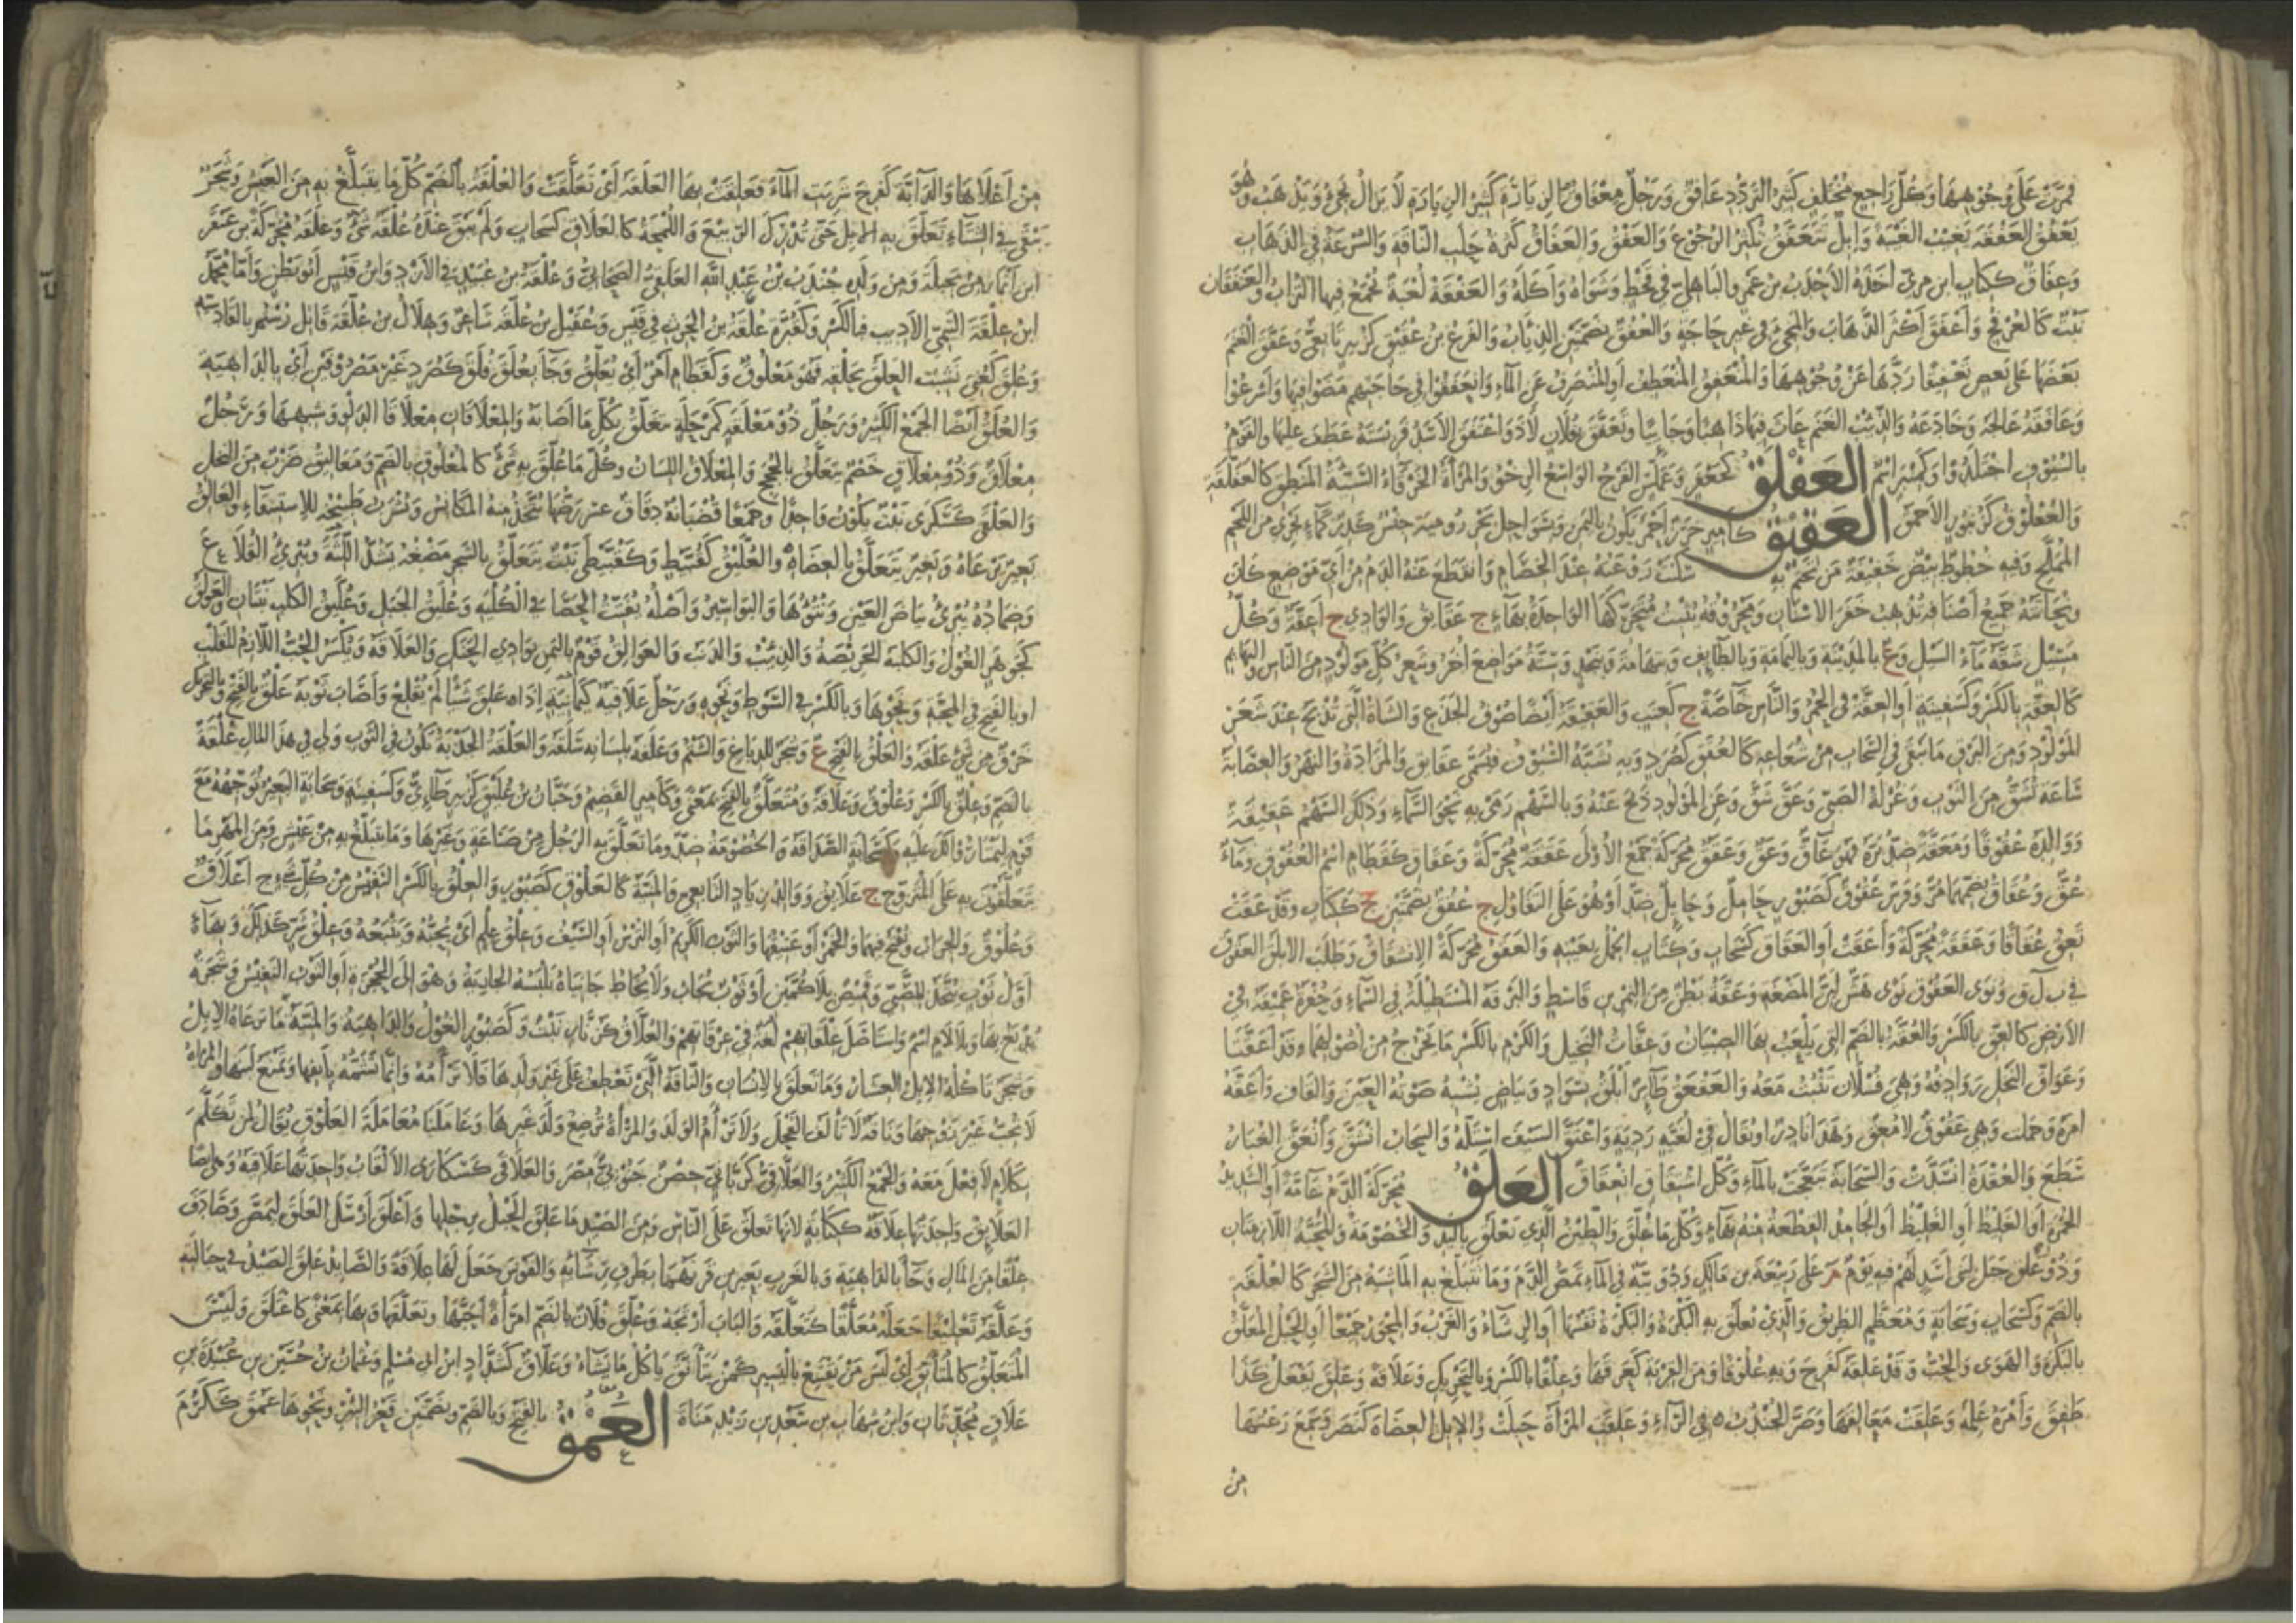 فمرت على وجوهها وكل راجع مختلف كثير التردد عافق ورجل معفاق الزيارة كثير الزيارة لا يزال يجيء ويذهب وهو
يعفق العفقة يغيب الغيبة وإبل تتعفق تكثر الرجوع والعفق والعفاق كثرة حلب الناقة والسرعة في الذهاب
وعفاق ككتاب ابن مري أخذه الأحدب بن عمرو الباهلي في قحط وشواه وأكله والعفقة لعبة يجمع فيها التراب والعنفقان
نبت كالعرفج وأعفق أكثر الذهاب والمجيء في غير حاجة والعفق بضمتين الذئاب والفرع بن عفيق كزبير تابعي وعفق الغنم
بعضها على بعض تعفيقا ردها عن وجوهها والمنعفق المنعطف أو المنصرف عن الماء وانعفقوا في حاجتهم مضوا فيها وأسرعوا
وعافقه عالجه وخادعه والذئب الغنم عاث فيها ذاهبا وجائيا وتعفق بفلان لاذ واعتفق الأسد فريسته عطف عليها والقوم
بالسيوف اجتلدوا وكمنبر اسم العفلق كجعفر وعملس الفرج الواسع الرخو والمرأة الخرقاء السيئة المنطق كالعفلقة
والعفلوق كزنبور الأحمق العقيق كأمير خرز أحمر يكون باليمن وبسواحل بحر رومية جنس كدر كماء يجري من اللحم
المملح وفيه خطوط بيض خفيفة من تختم به سكنت روعته عند الخصام وانقطع عنه الدم من أي موضع كان
ونحاتة جميع أصنافه تذهب حفر الأسنان ومحروقه يثبت متحركها الواحدة بهاء ج عقائق والوادي ج أعقة وكل
مسيل شقه ماء السيل وع بالمدينة وباليمامة وبالطائف وبتهامة وبنجد وستة مواضع أخر وشعر كل مولود من الناس والبهائم
كالعقة بالكسر وكسفينة أو العقة في الحمر والناس خاصة ج كعنب والعقيقة أيضا صوف الجذع والشاة التي تذبح عند شعر
المولود ومن البرق ما يبقى في السحاب من شعاعه كالعقق كصرد وبه تشبه السيوف فتسمى عقائق والمزادة والنهر والعصابة
ساعة تشق من الثوب وغرلة الصبي وعق شق وعن المولود ذبح عنه وبالسهم رمى به نحو السماء وذلك السهم عقيقة
ووالده عقوقا ومعقة ضد بره فهو عاق وعق وعقق محركة جمع الأولى عققة محركة وعقاق كقطام اسم العقوق وماء
عق وعقاق بضمهما مر وفرس عقوق كصبور حامل وحائل ضد أو هو على التفاؤل ج عقق بضمتين جج ككتاب وقد عقت
تعق عقاقا وعققا محركة وأعقت أو العقاق كسحاب وكتاب الحمل بعينه والعقق محركة الانشقاق وطلب الأبلق العقوق
في ب ل ق ونوى العقوق نوى هش لين الممضغة وعقة بطن من النمر بن قاسط والبرقة المستطيلة في السماء وحفرة عميقة في
الأرض كالعق بالكسر والعقة بالضم التي يلعب بها الصبيان وعقات النخيل والكرم بالكسر ما يخرج من أصولهما وقد أعقتا
وعواق النخل روادفه وهي فسلان تنبت معه والعقعق طائر أبلق بسواد وبياض يشبه صوته العين والقاف وأعقه
أمره وحملت وهي عقوق لا معق وهذا نادر أو يقال في لغية ردية واعتق السيف استله والسحاب انشق وانعق الغبار
سطع والعقدة انشدت والسحابة تبعجت بالماء وكل انشقاق انعقاق العلق محركة الدم عامة أو الشديد
الحمرة أو الغليظ أو الجامد القطعة منه بهاء وكل ما علق والطين الذي يعلق باليد والخصومة والمحبة اللازمتان
وذو علق جبل لبني أسد لهم فيه يوم م على ربيعة بن مالك ودويبة في الماء تمص الدم وما تتبلغ به الماشية من الشجر كالعلقة
بالضم وكسحاب وسحابة ومعظم الطريق والذي تعلق به البكرة والبكرة نفسها أو الرشاء والغرب والمحور جميعا أو الحبل المعلق
بالبكرة والهوى والحب وقد علقه كفرح وبه علوقا ومن القربة كعرقها وعلقا بالكسر وبالتحريك وعلاقة وعلق يفعل كذا
طفق وأمره علمه وعلقت معالقها وصر الجندب ه في الراء وعلقت المرأة حبلت والإبل العضاه كنصر وسمع رعتها
من
من أعلاها والدابة كفرح شربت الماء فعلقت بها العلقة أي تعلقت والعلقة بالضم كل ما يتبلغ به من العيش وشجر
يبقى في الشتاء تعلق به الإبل حتى تدرك الربيع واللمجة كالعلاق كسحاب ولم يبق عنده علقة شيء وعلقة محركة بن عبقر
ابن أنمار من بجيلة ومن ولده جندب بن عبد الله العلقي الصحابي وعلقة بن عبيد في الأزد وابن قيس أبو بطن وأما محمد
ابن علقة التيمي الأديب فبالكسر وكقبرة علقة بن الحرث في قيس وعقيل بن علقة شاعر وهلال بن علقة قاتل رستم بالقادسية
وعلق كعني نشبت العلق بحلقه فهو معلوق وكقطام أمر أي تعلق وجاء بعلق فلق كصرد غير مصروفين أي بالداهية
والعلق أيضا الجمع الكثير ورجل ذو معلقة كمرحلة يتعلق بكل ما أصابه والمعلاقان معلاقا الدلو وشبهها ورجل
معلاق وذو معلاق خصم يتعلق بالحجج والمعلاق اللسان وكل ما علق به شيء كالمعلوق بالضم ومعاليق ضرب من النخل
والعلقى كسكرى نبت يكون واحدا وجمعا قضبانه دقاق عسر رضها يتخذ منه المكانس ويشرب طبيخه للاستسقاء والعالق
بعير يرعاه وبعير يتعلق بالعضاه والعليق كقبيط وكقبيطى نبت يتعلق بالشجر مضغه يشد اللثة ويبرئ القلاع
وضماده يبرئ بياض العين ونتوها والبواسير وأصله يفتت الحصا في الكلية وعليق الجبل وعليق الكلب نبتان والعولق
كجوهر الغول والكلبة الحريصة والذئب والذنب والعوالق قوم باليمن بوادي الحنك والعلاقة ويكسر الحب اللازم للقلب
أو بالفتح في المحبة ونحوها وبالكسر في السوط ونحوه ورجل علاقية كثمانية إذا علق شيئا لم يقلع وأصاب ثوبه علق بالفتح وبالتحريك
خرق من شيء علقه والعلق بالفتح ع وشجر للدباغ والشتم وعلقه بلسانه سلقه والعلقة الجذبة تكون في الثوب ولي في هذا المال علقة
بالضم وعلق بالكسر وعلوق وعلاقة ومتعلق بالفتح بمعنى وكأمير القضيم وحبان بن عليق كزبير طائي وكسفينة وسحابة البعير توجهه مع
قوم ليمتاروا لك عليه وكسحابة الصداقة والخصومة ضد وما تعلق به الرجل من صناعة وغيرها وما يتبلغ به من عيش ومن المهر ما
يتعلقون به على المتزوج ج علائق ووالد زياد التابعي والمنية كالعلوق كصبور والعلق بالكسر النفيس من كل شيء ج أعلاق
وعلوق والجراب ويفتح فيهما والخمر أو عتيقها والثوب الكريم أو الترس أو السيف وعلق علم أي يحبه ويتبعه وعلق شر كذلك وبهاء
أول ثوب يتخذ للصبي وقميص بلا كمين أو ثوب يجاب ولا يخاط جانباه تلبسه الجارية وهو إلى الحجزة أو الثوب النفيس وشجرة
يدبغ بها وبلا لام اسم واستأصل علقاتهم لغة في عرقاتهم والعلاق كزنار نبت وكصبور الغول والداهية والمنية وما ترعاه الإبل
وشجر تأكله الإبل العشار وما تعلق بالإنسان والناقة التي تعطف على غير ولدها فلا ترأمه وإنما تشمه بأنفها وتمنع لبنها والمرأة
لا تحب غير زوجها وناقة لا تألف الفحل ولا ترأم الولد والمرأة ترضع ولد غيرها وعاملنا معاملة العلوق يقال لمن تكلم
بكلام لا فعل معه والجمع الكثير والعلاقي كزبائي حصن جنوبي مصر والعلاقى كسكارى الألقاب واحدتها علاقية وهي أيضا
العلائق واحدتها علاقة ككتابة لأنها تعلق على الناس ومن الصيد ما علق الحبل برجلها وأعلق أرسل العلق ليمص وصادف
علقا من المال وجاء بالداهية وبالغرب بعيرين قرنهما بطرف رشائه والقوس جعل لها علاقة والصائد علق الصيد في حبالته
وعلقه تعليقا جعله معلقا كتعلقه والباب أرتجه وعلق فلان بالضم امرأة أحبها وتعلقها وبها بمعنى كاعتلق وليس
المتعلق كالمتأنق أي ليس من يقتنع باليسير كمن يتأنق يأكل ما يشاء وعلاق كشداد ابن أبي مسلم وعثمان بن حسين بن عبيدة بن
علاق محدثان وابن شهاب بن سعد بن زيد مناة العمق بالفتح وبالضم وبضمتين قعر البئر ونحوها عمق ككرم